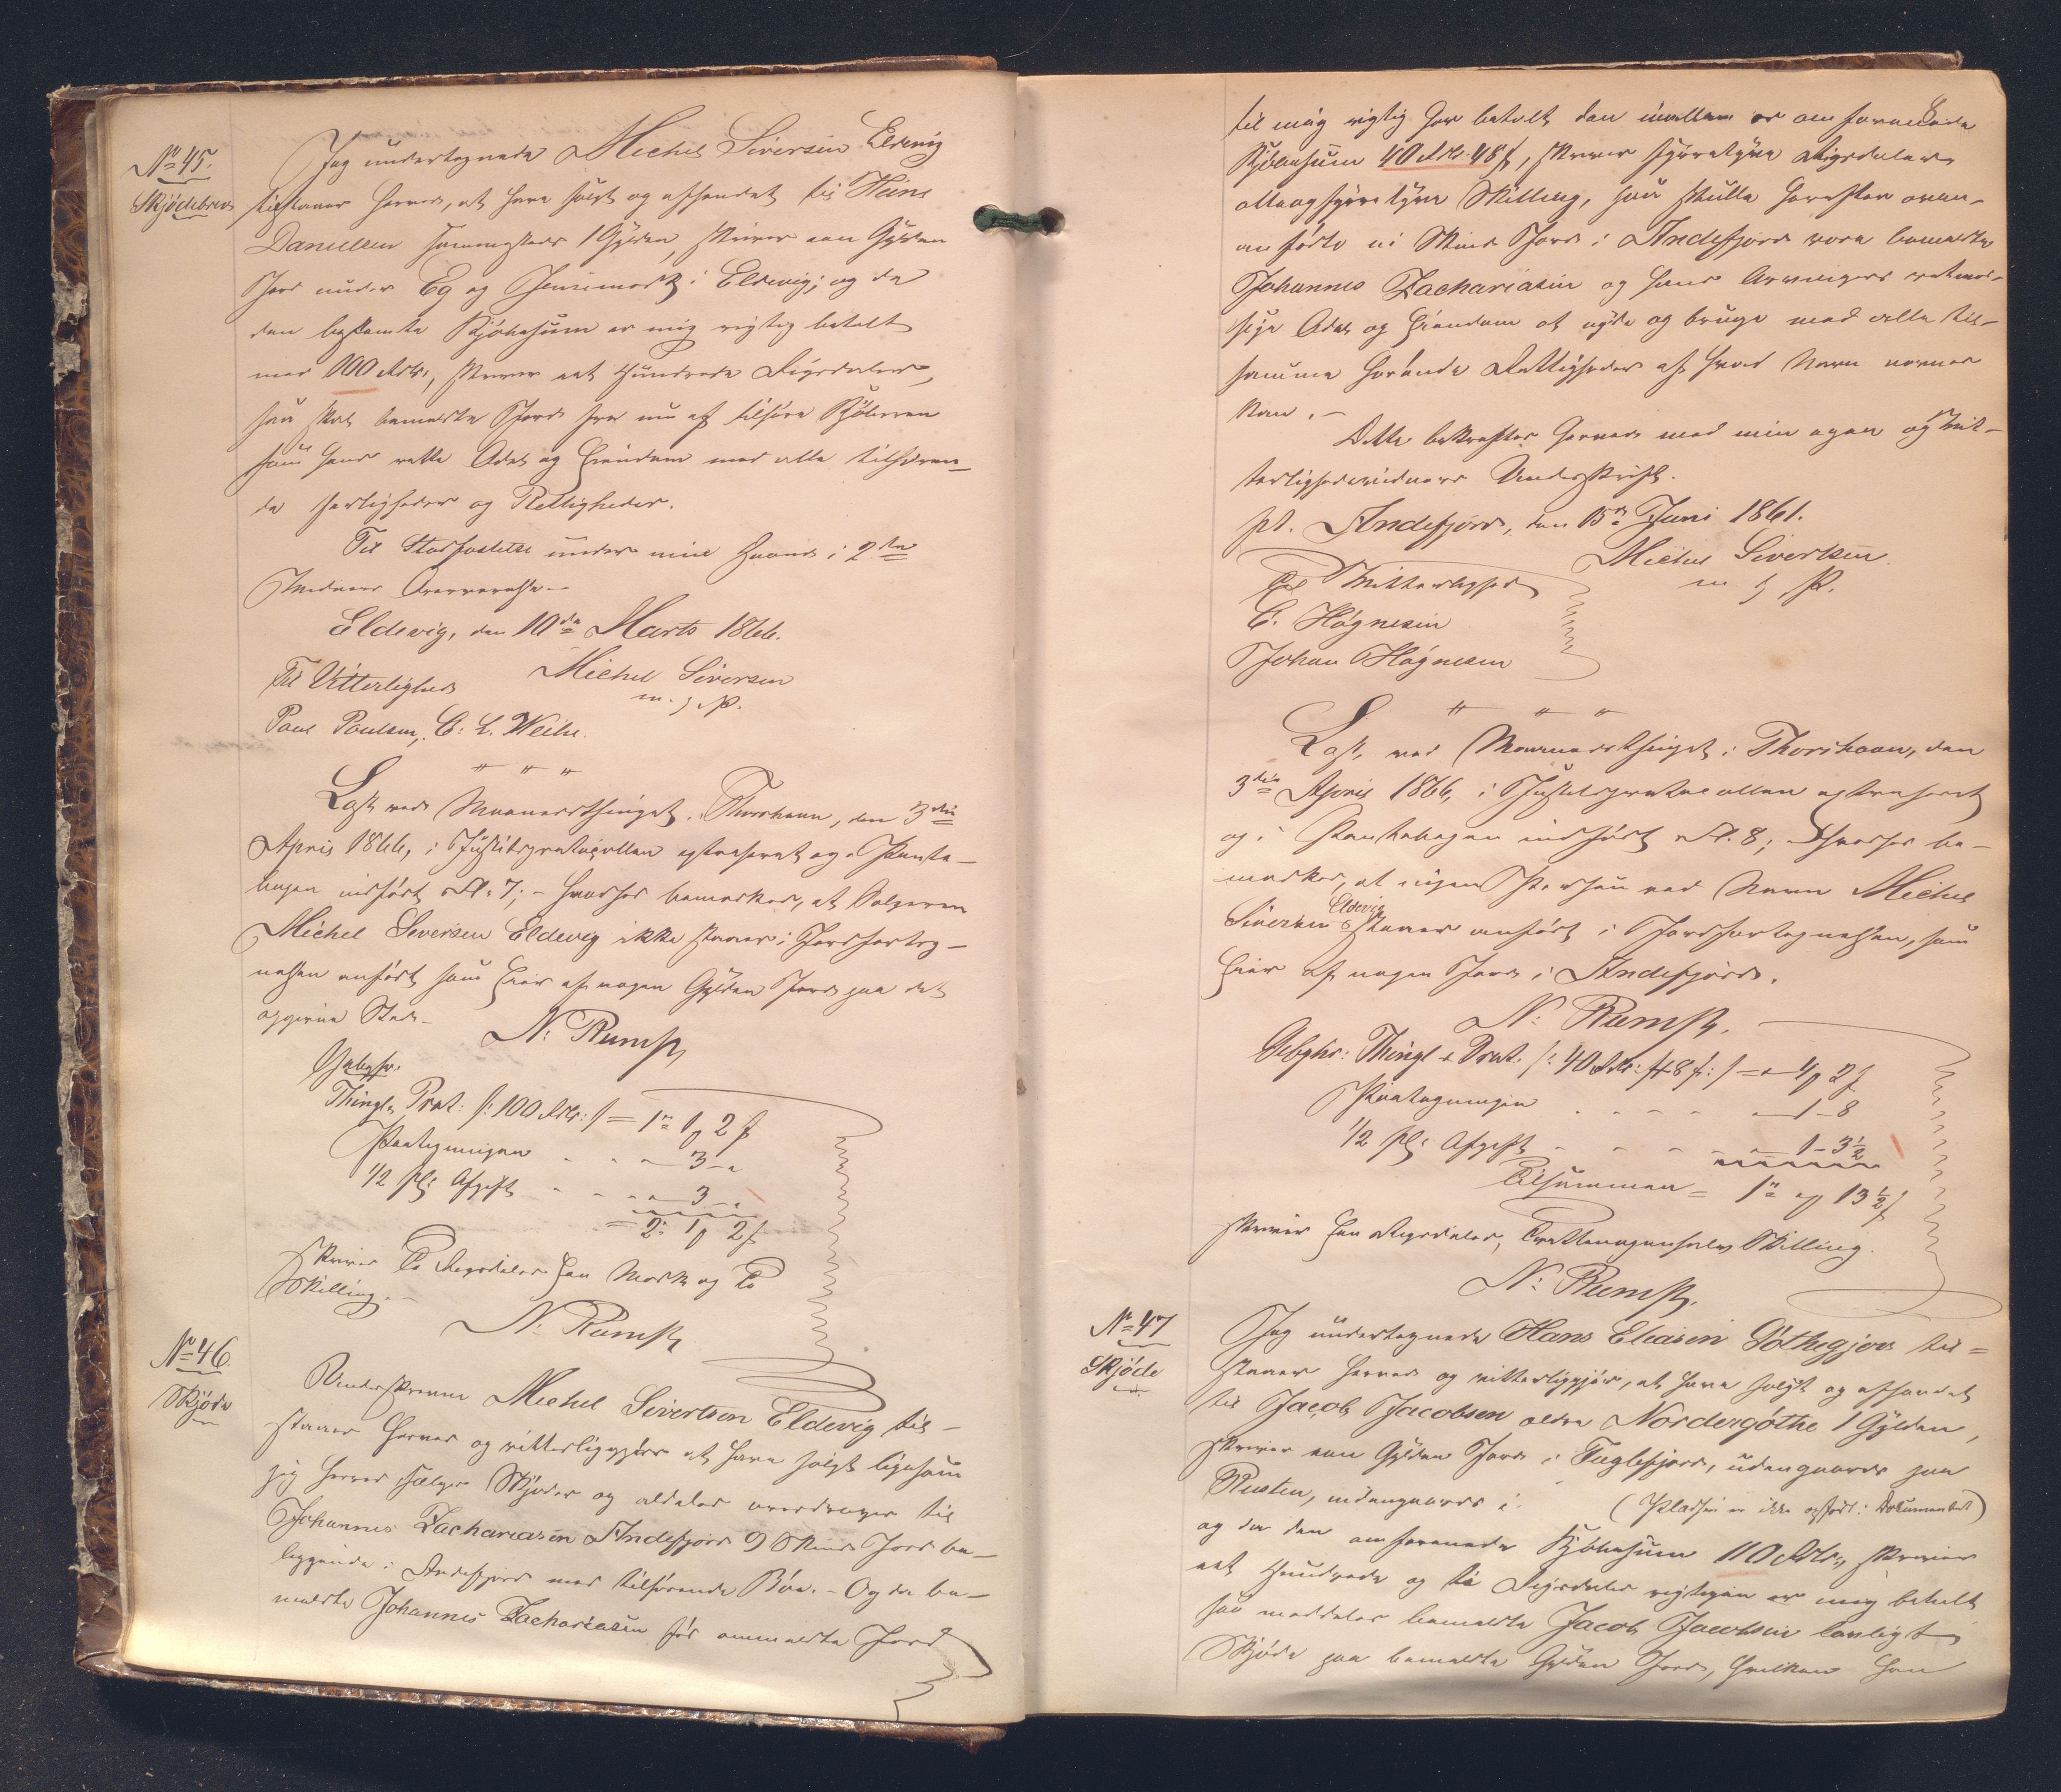 No 45.
Skjödebrev
Jeg undertegnede Michel Siversen Eldevig
tilstaaer herved, at have solgt og afhændet til Hans
Danielsen sammesteds 1 Gylden, skriver een Gylden
Jord under Eg og i Eldevig; og da
den bestemte Kjøbesum er mig rigtig betalt
med 100 Rdlr., skriver eet Hundrede Rigsdaler,
saa skal bemeldte Jord fra nu af tilhøre Kjøberen
som hans rette Odel og Eiendom med alle tilhøren-
de Herligheder og Rettigheder.
Til Stadfæstelse under min Haand i 2de
Vidners Overværelse.-
Eldevig, den 10de Marts 1866.
Michel Siversen
m. f. P.
Til Vitterlighed
Poul Poulsen, C. L. Weihe.
" " "
Læst ved Maanedsthinget i Thorshavn, den 3die
April 1866, i Justitsprotocollen extraheret og i Pante-
bogen indført Fl. 7; - hvorhos bemærkes, at Sælgeren
Michel Seversen Eldevig ikke staaer i Jordforteg-
nelsen anført som Eier af nogen Gylden Jord paa det
opgivne Sted.-
N. Rump
Gebyhr.
Thingl. Prot. /: 100 Rdlr: / = 1" 1 2 f
Paategningen - - - 3 - "
1/2 pCt. Afgift - - - 3 - "
= 2" 1 2 f
skriver To Rigsdaler Een Mark og To
Skilling.-
N. Rump
No 46.
Skjøde
Underskrevne Michel Sivertsen Eldevig til-
staaer herved og vitterliggjør at have solgt ligesom
jeg herved sælger Skjøder og aldeles overdrager til
Johannes Zachariasen Andefjord 9 Skind Jord be-
liggende i Andefjord med tilhørende Böe. - Og da be-
meldte Johannes Zachariasen for ommeldte Jord
8
til mig rigtig har betalt den imellem os omforenede
Kjøbesum 40 Rdlr. 48 f, skriver fyrretyve Rigsdaler
otteogfyrretyve Skilling, saa skulle herefter oven-
anførte ni Skind Jord i Andefjord være bemeldte
Johannes Zachariasen og hans Arvingers retmæs-
sige Odel og Eiendom at nyde og bruge med alle til-
samme hørende Rettigheder af hvad Navn nævnes
kan. -
Dette bekræftes herved med min egen og Vit-
terlighedsvidners Underskrift.
pt. Andefjord, den 15de Juni 1861.
Michel Sivertsen
m f P.
Til Vitterlighed
C. Högnesen
Johan Högnesen
" " "
Læst ved Maanedsthinget i Thorshavn, den
3die April 1866, i Justitsprotocollen extraheret
og i Pantebogen indført Fl. 8; hvorhos be-
mærkes, at ingen Person ved Navn Michel
Siversen Eldevig staaer anført i Jordfortegnelsen, som
Eier af nogen Jord i Andefjord.
N. Rump.
Gebyhr: Thingl & Prot. /: 40 Rdlr: 48 f: / = " 4 2 f
Paategningen - - - - 1 - 8
1/2 pCt. Afgift - - - - 1 - 3 1/2
Tilsammen = 1" " 13 1/2 f
skriver Een Rigsdaler, Trettenogenhalv Skilling.
N. Rump.
No 47
Skjöde
Jeg undertegnede Hans Eliasen Göthegjov til=
staaer herved og vitterliggjør, at have solgt og afhændet
til Jacob Jacobsen ældre Nordergöthe 1 Gylden,
skriver een Gylden Jord i Fuglefjord, udengaards paa
Rusten, indengaards i (Pladsen er ikke opført i Dokumentet)
og da den omforenede Kjøbesum 110 Rdlr., skriver
eet Hundrede og ti Rigsdaler rigtigen er mig betalt
saa meddeles bemeldte Jacob Jacobsen lovligt
Skjøde paa bemeldte Gylden Jord, hvilken han